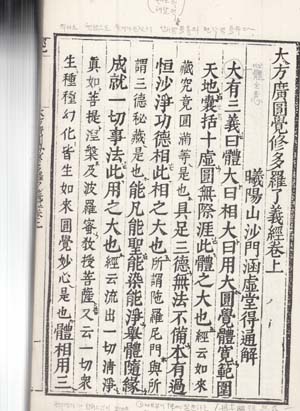 大方廣圓覺修多羅了義經卷上
曦陽山沙門涵虛堂得通解
大有三義曰體大曰相大曰用大圓覺體寬範圍
天地囊括十虛圓無際涯此體之大也經云如來
藏究竟圓滿等是也具足三德無法不備本有過
恒沙淨功德相此相之大也所謂陁羅尼門與所
謂三德秘藏是也能凡能聖能染能淨擧體隨緣
成就一切事法此用之大也經云流出一切清淨
眞如菩提涅槃及波羅密敎授菩薩又云一切衆
生種種幻化皆生如來圓覺妙心是也體相用三